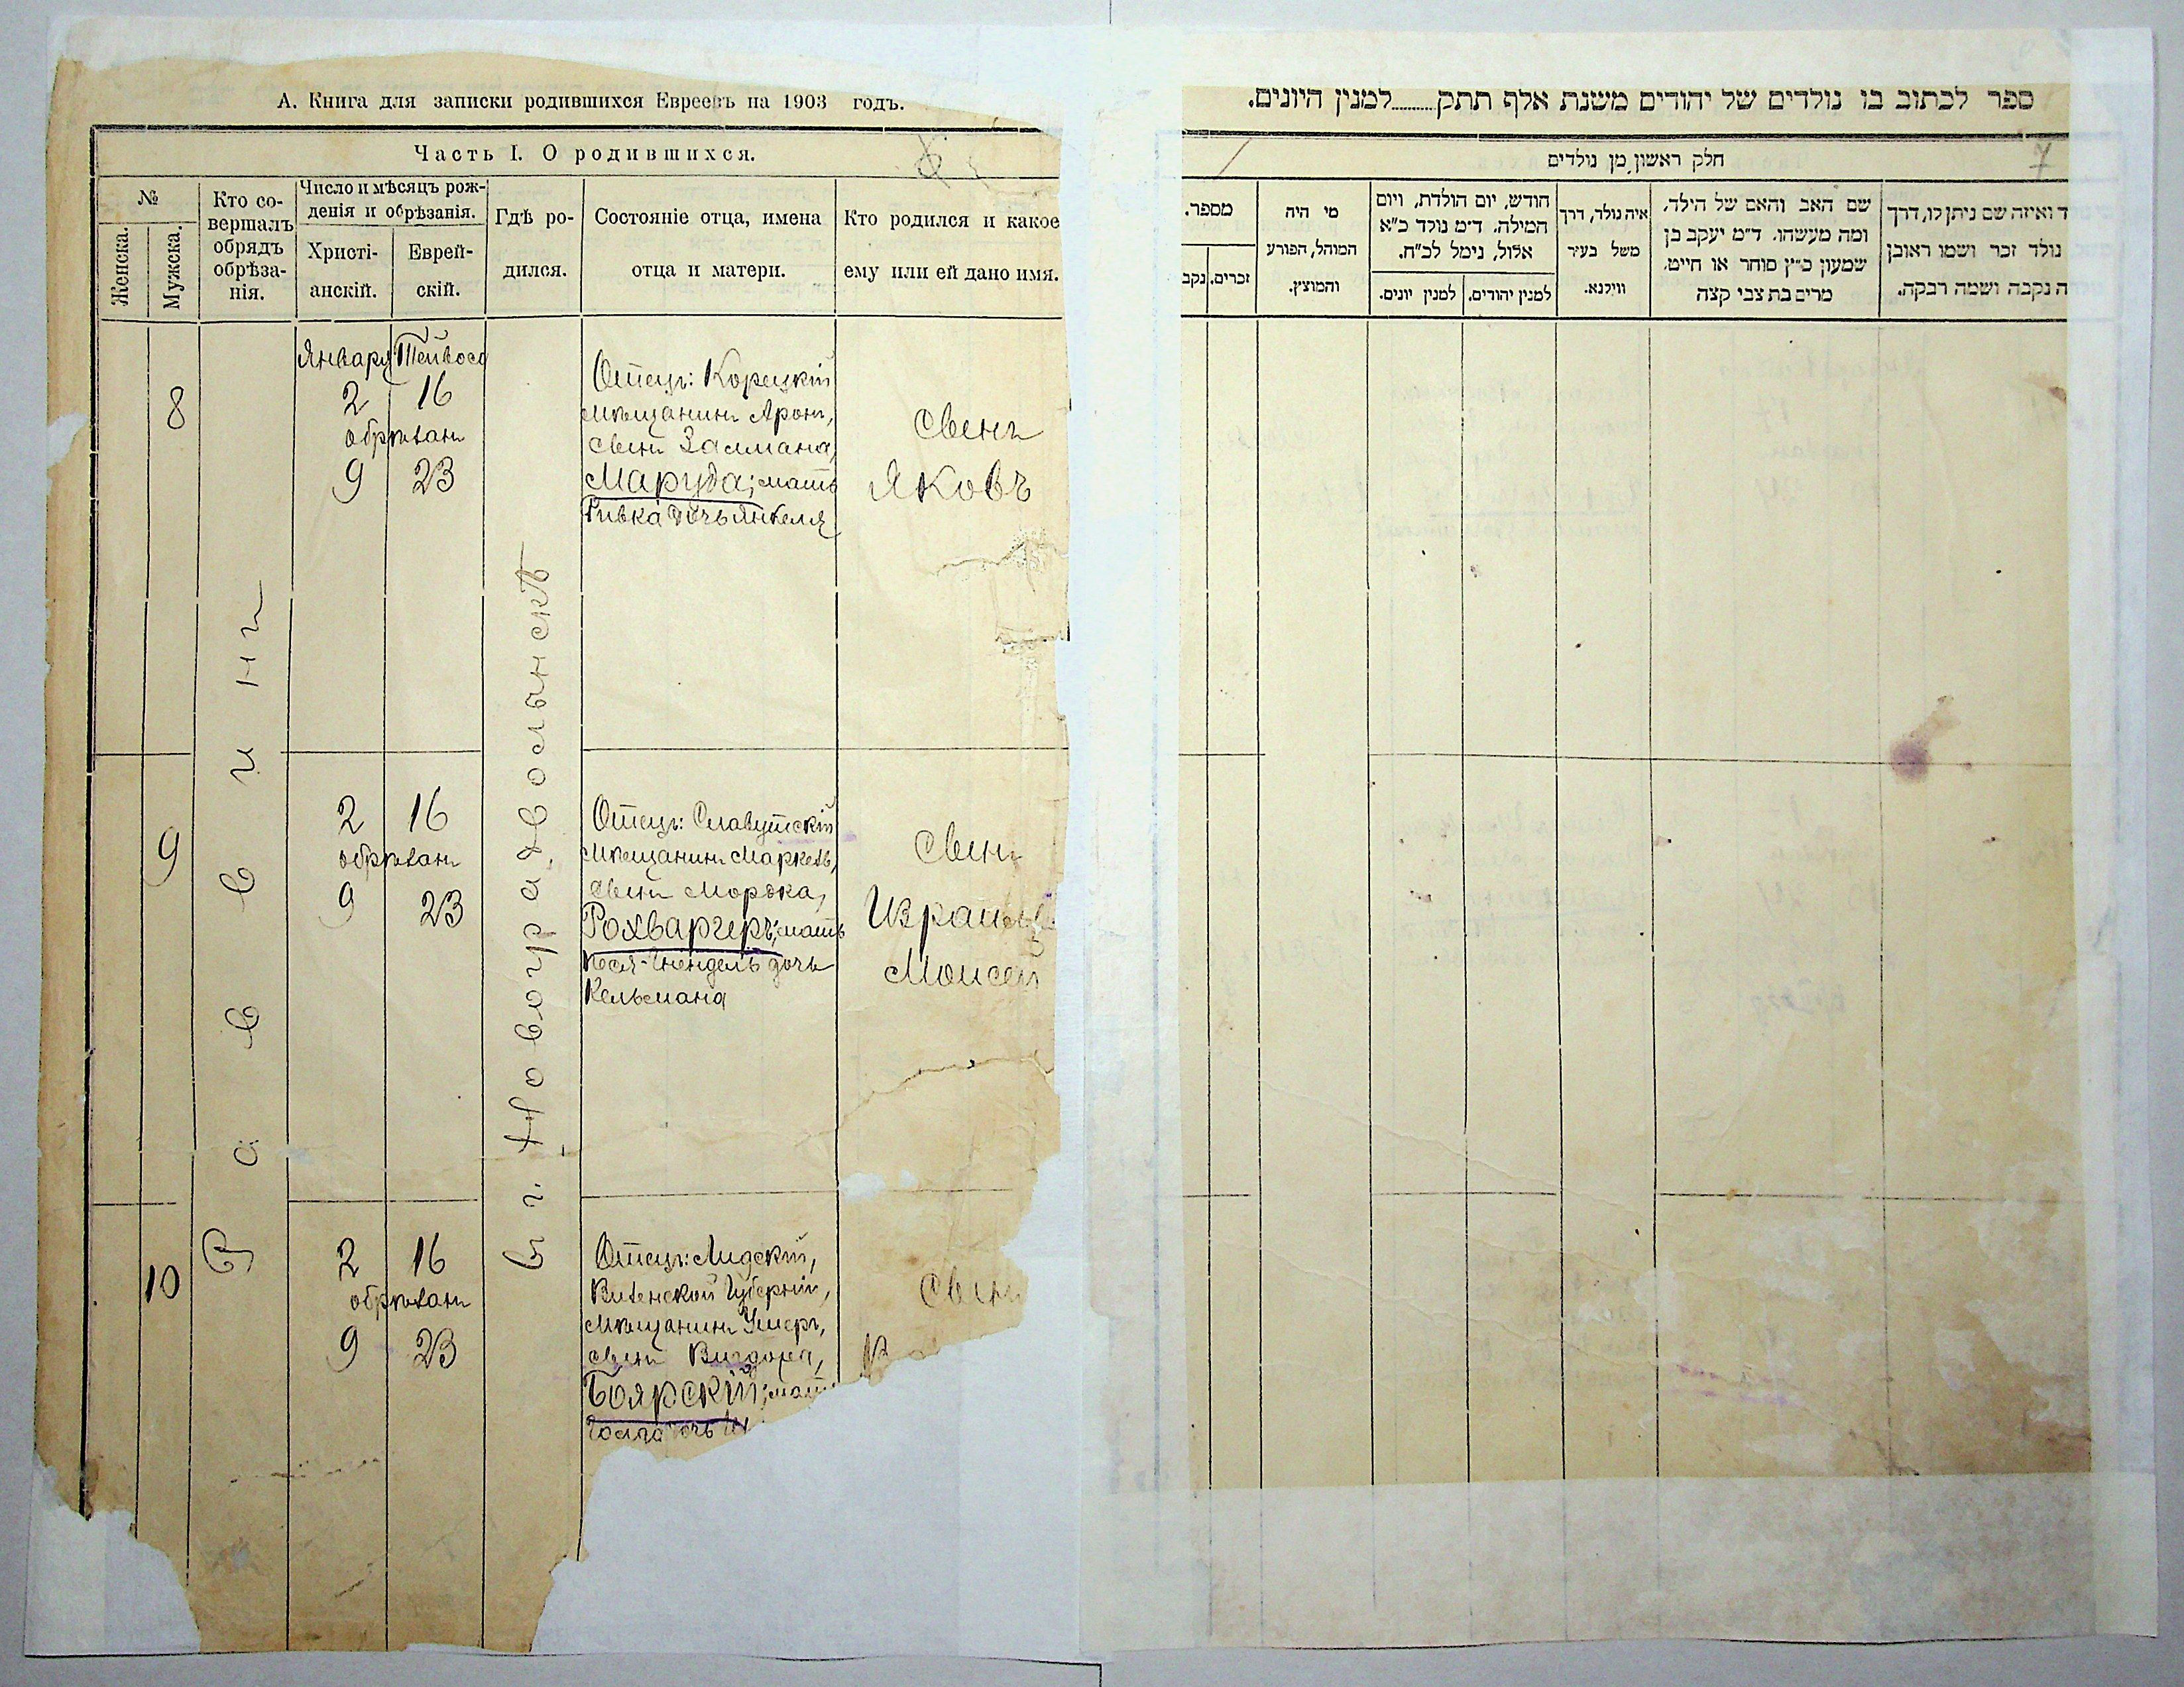 А. Книга для записки родившихся Евреевъ на 1903 годъ.
Часть I. О родившихся.
№
Женска.
Мужска.
Кто со-
вершалъ
обрядъ
обрѣза-
нія.
Число и мѣсяцъ рож-
денія и обрѣзанія.
Христі-
анскій.
Еврей-
скій.
Гдѣ ро-
дился.
Состояніе отца, имена
отца и матери.
Кто родился и какое
ему или ей дано имя.
Раввинъ
въ г. Новоградволынскѣ
8
Января Тейвеса
2 16
обрѣзанъ
9 23
Отецъ: Корецкій
мѣщанинъ Аронъ,
сынъ Залмана,
Маруда; мать
Ривка дочь Янкеля
сынъ
Яковъ
9
2 16
обрѣзанъ
9 23
Отецъ: Славутскій
мѣщанинъ
сынъ Мордка,
Рохваргеръ; мать
дочь
Кельмана
сынъ
Израиль
Моисей
10
2 16
обрѣзанъ
9 23
Отецъ: Лидскій,
Виленской Губерніи,
мѣщанинъ
сынъ Вигдора,
Боярскій; мать
дочь
сынъ
ספר לכתוב בו נולדים של יהודים משנת אלף תתק........למנין היונים.
חלק ראשון מן נולדים
7
מספר.
זכרים.
נקב
מי היה
המוהל, הפורע
והמוצץ.
חודש, יום הולדת, ויום
המילה. ד״מ נולד כ״א
אלול, נימל לכ״ח.
למנין יהודים.
למנין יונים.
איה נולד, דרך
משל בעיר
ווילנא.
שם האב והאם של הילד,
ומה מעשהו. ד״מ יעקב בן
שמעון כ״ץ סוחר או חייט,
מרים בת צבי קצה
ד ואיזה שם ניתן לו, דרך
נולד זכר ושמו ראובן
ה נקבה ושמה רבקה.